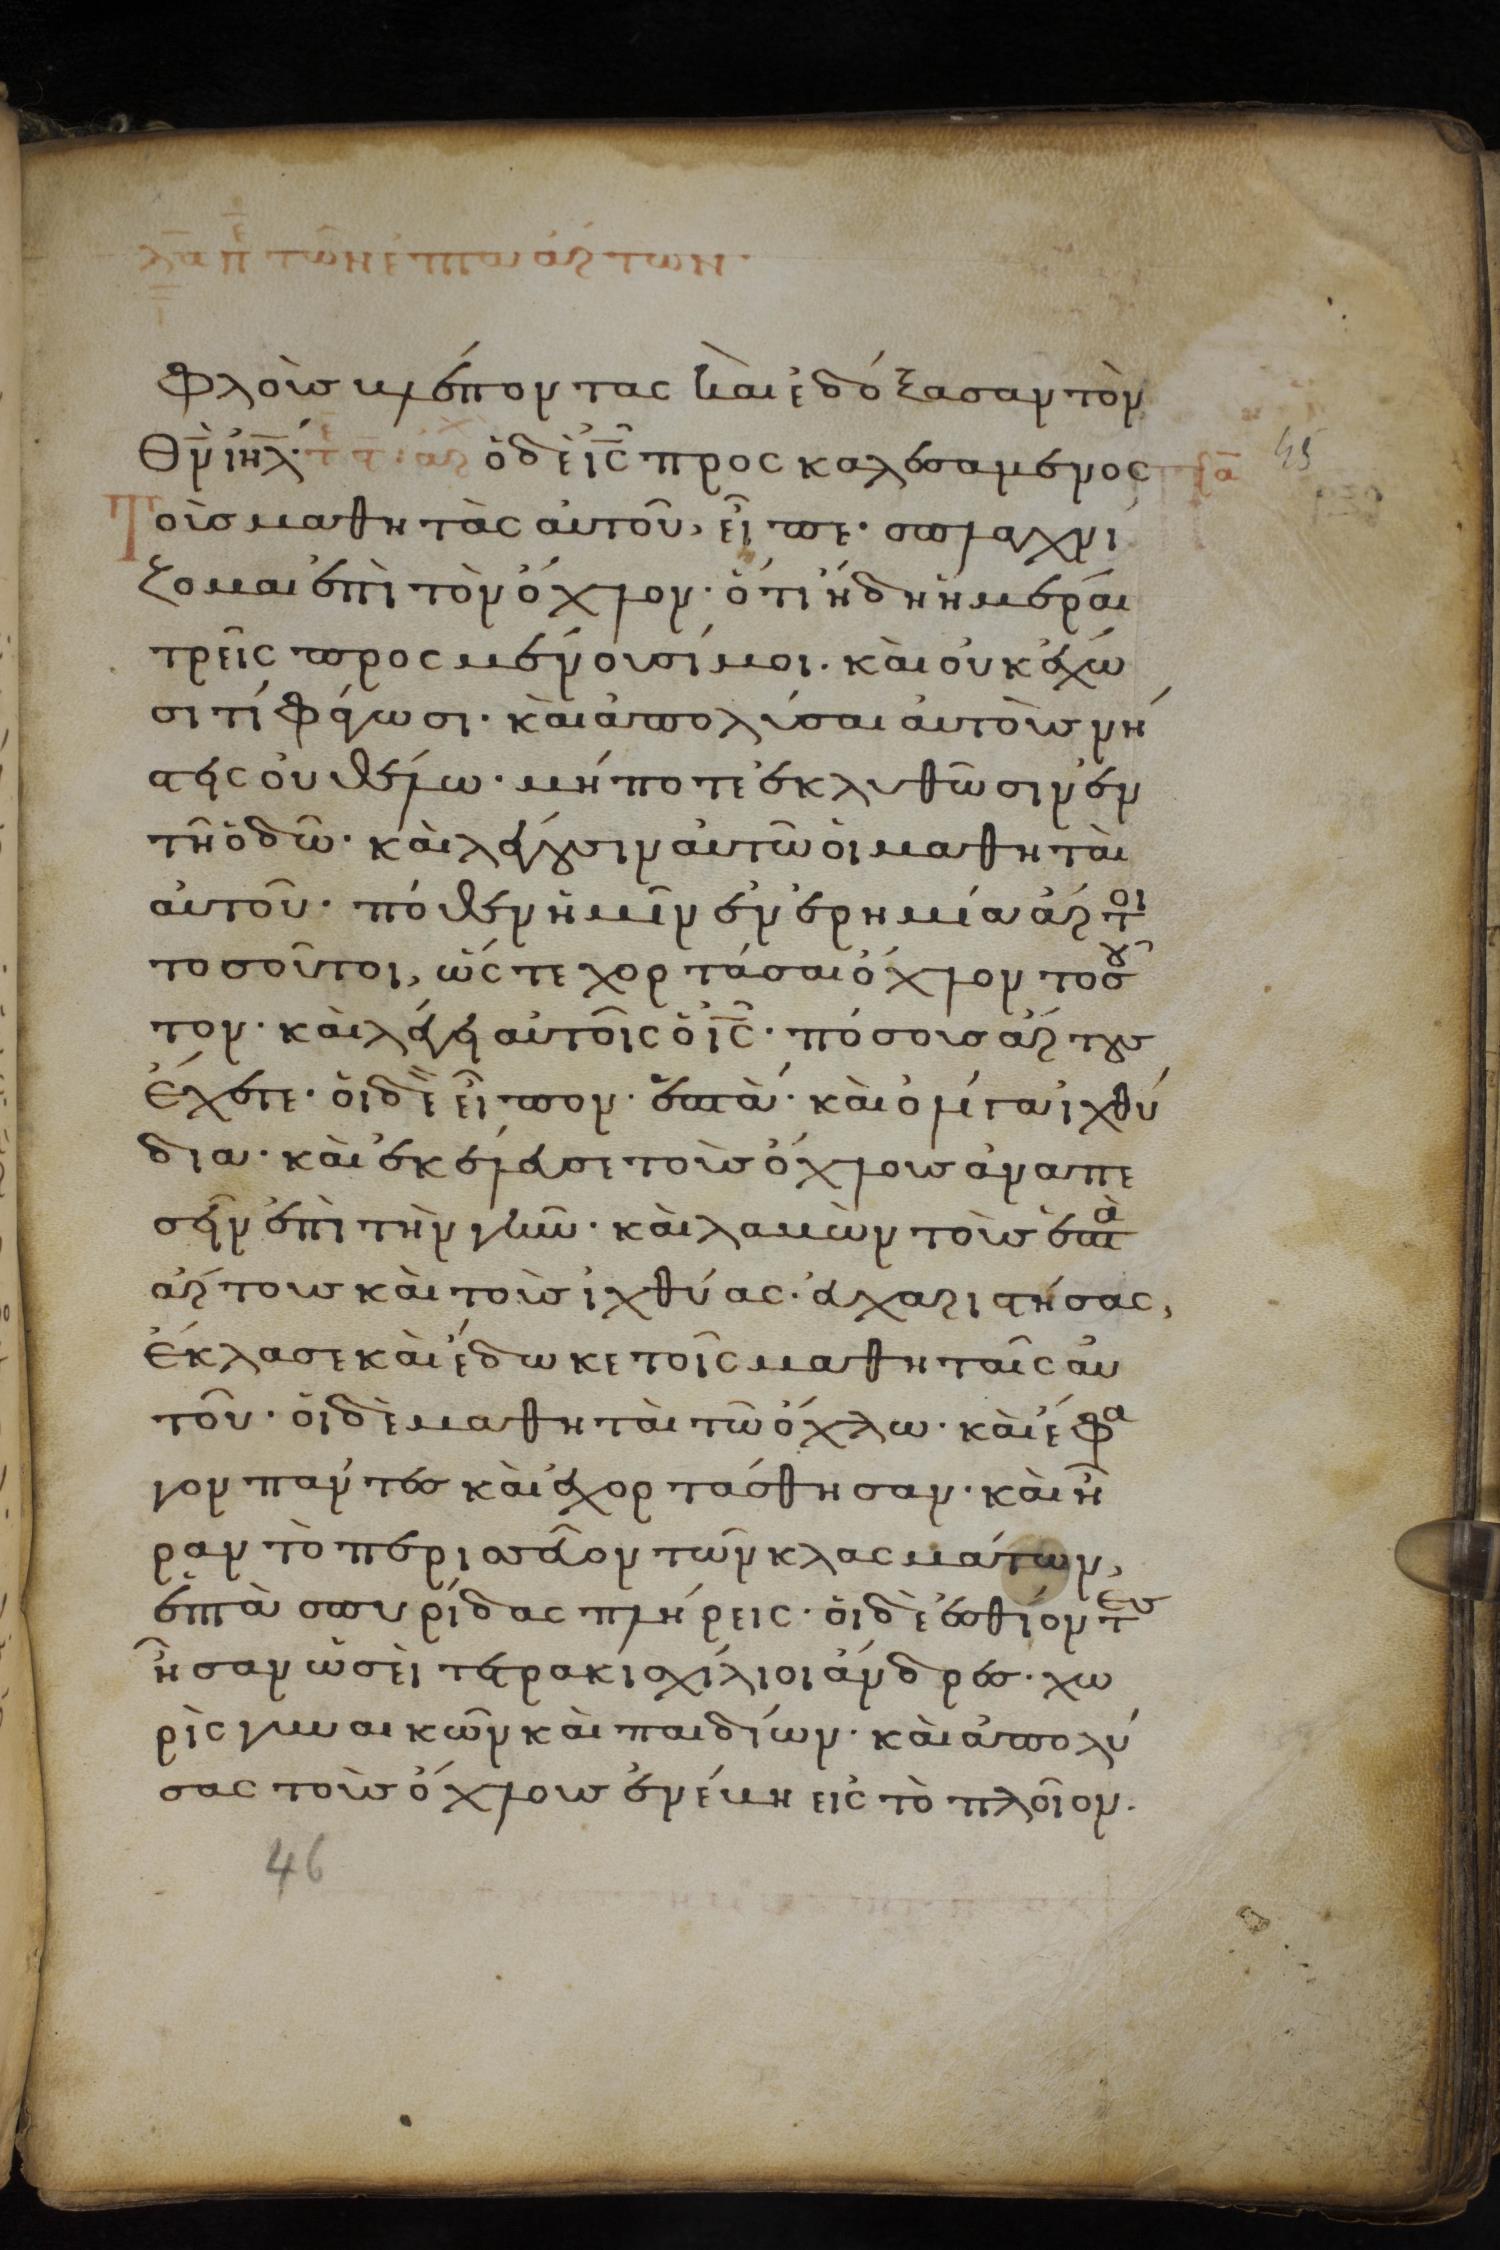 λ̅α̅ π ε τῶν ἑπτὰ ἄρτων·
φλοὺς βλέποντας καὶ ἐδόξασαν τὸν
θ̅ν̅ ι̅η̅λ̅· ὁ δὲ ι̅ς̅ προσκαλεσάμενος
τοὺς μαθητὰς αὐτοῦ, εἶπε· σπλαγχνί
ζομαι ἐπὶ τὸν ὄχλον· ὅτι ἤδη ἡμέραι
τρεῖς προσμένουσί μοι. καὶ οὐκ ἔχω
σι τί φάγωσι· καὶ ἀπολύσαι αὐτοὺς νή
στεις οὐ θέλω· μήποτε ἐκλυθῶσιν ἐν
τῆ ὁδῶ· καὶ λέγουσιν αὐτῶ οἱ μαθηταὶ
αὐτοῦ· πόθεν ἡμῖν ἐν ἐρημία ἄρτοι
τοσοῦτοι, ὥστε χορτάσαι ὄχλον τοσοῦ
τον· καὶ λέγει αὐτοῖς ὁ ι̅ς̅· πόσους ἄρτους
ἔχετε· οἱ δὲ εἶπον· ἑπτὰ· καὶ ὀλίγα ἰχθύ
δια· καὶ ἐκέλευσε τοὺς ὄχλους ἀναπε
σεῖν ἐπὶ τὴν γῆν· καὶ λαβὼν τοὺς ἑπτὰ
ἄρτους καὶ τοὺς ἰχθύας· εὐχαριστήσας,
ἔκλασε καὶ ἔδωκε τοῖς μαθηταῖς αὐ
τοῦ· οἱ δὲ μαθηταὶ τῶ ὄχλω· καὶ ἔφα
γον πάντες καὶ ἐχορτάσθησαν· καὶ ἦ
ραν τὸ περισσεῦον τῶν κλασμάτων,
ἑπτὰ σπυρίδας πλήρεις· οἱ δὲ ἐσθίοντες
ἦσαν ὡσεὶ τετρακισχίλιοι ἄνδρες· χω
ρὶς γυναικῶν καὶ παιδίων· καὶ ἀπολύ
σας τοὺς ὄχλους ἐνέβη εἰς τὸ πλοῖον.
45
46